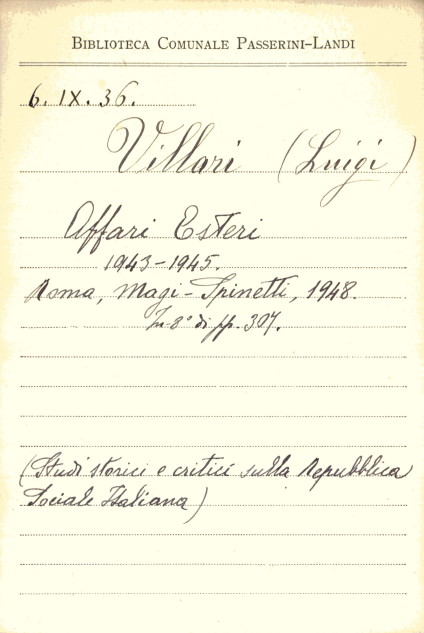 BIBLIOTECA COMUNALE PASSERINI-LANDI
6. IX. 36.
Villari (Luigi)
Affari Esteri
1943-1945.
Roma, Magi-Spinetti, 1948.
In-8° di pp. 307.
(Studi storici e critici sulla Repubblica
Sociale Italiana)